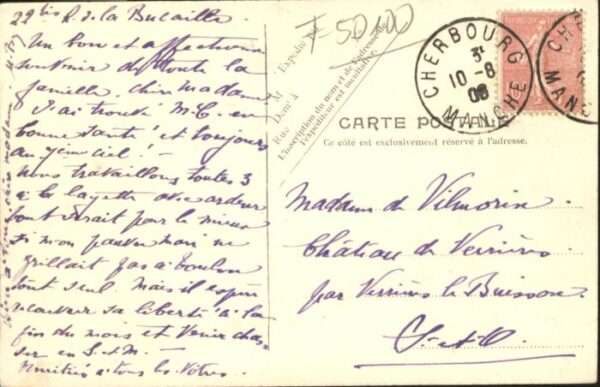 29bis R. de la Bucaille
Un bon et affectueux
souvenir de toute la
famille, chère madame
J'ai trouvé M.C. en
bonne santé et toujours
au 7ème ciel! -
nous travaillons toutes 3
à la layette avec ardeur
tout serait pour le mieux
si mon pauvre mari ne
grillait pas à Toulon
tout seul. Mais il espère
recouvrer sa liberté à la
fin du mois et venir chas
ser en S. & M.
Amitiés à tous les vôtres.
F 50400
Expédit
M
Dem^t à
Rue
L'inscription du nom et de l'adresse de
l'expéditeur est facultative.
CHERBOURG
10-8
08
MANCHE
CARTE POSTALE
Ce côté est exclusivement réservé à l'adresse.
Madame de Vilmorin
Château de Verrières
par Verrières le Buisson
S-et-O